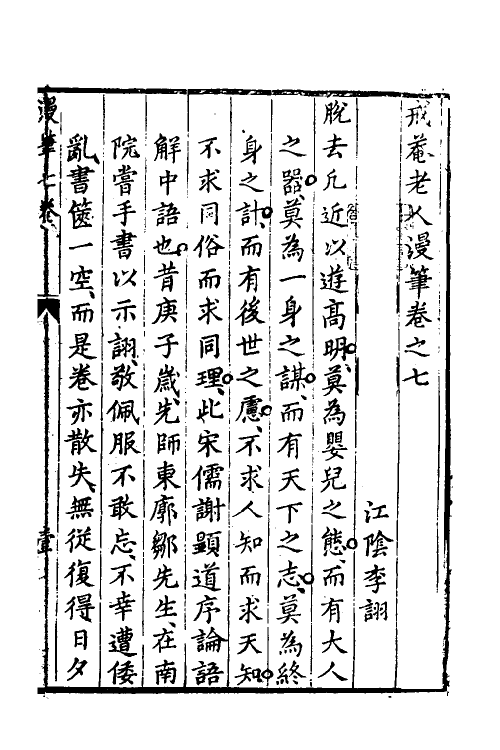 戒菴老人漫筆卷之七
江陰李詡
脫去凡近以遊高明莫為嬰兒之態而有大人
之器莫為一身之謀而有天下之志莫為終
身之計而有後世之慮不求人知而求天知
不求同俗而求同理此宋儒謝顯道序論語
解中語也昔庚子歲先師東廓鄒先生在南
院嘗手書以示詡敬佩服不敢忘不幸遭倭
亂書篋一空而是卷亦散失無從復得日夕
漫筆七卷
壹